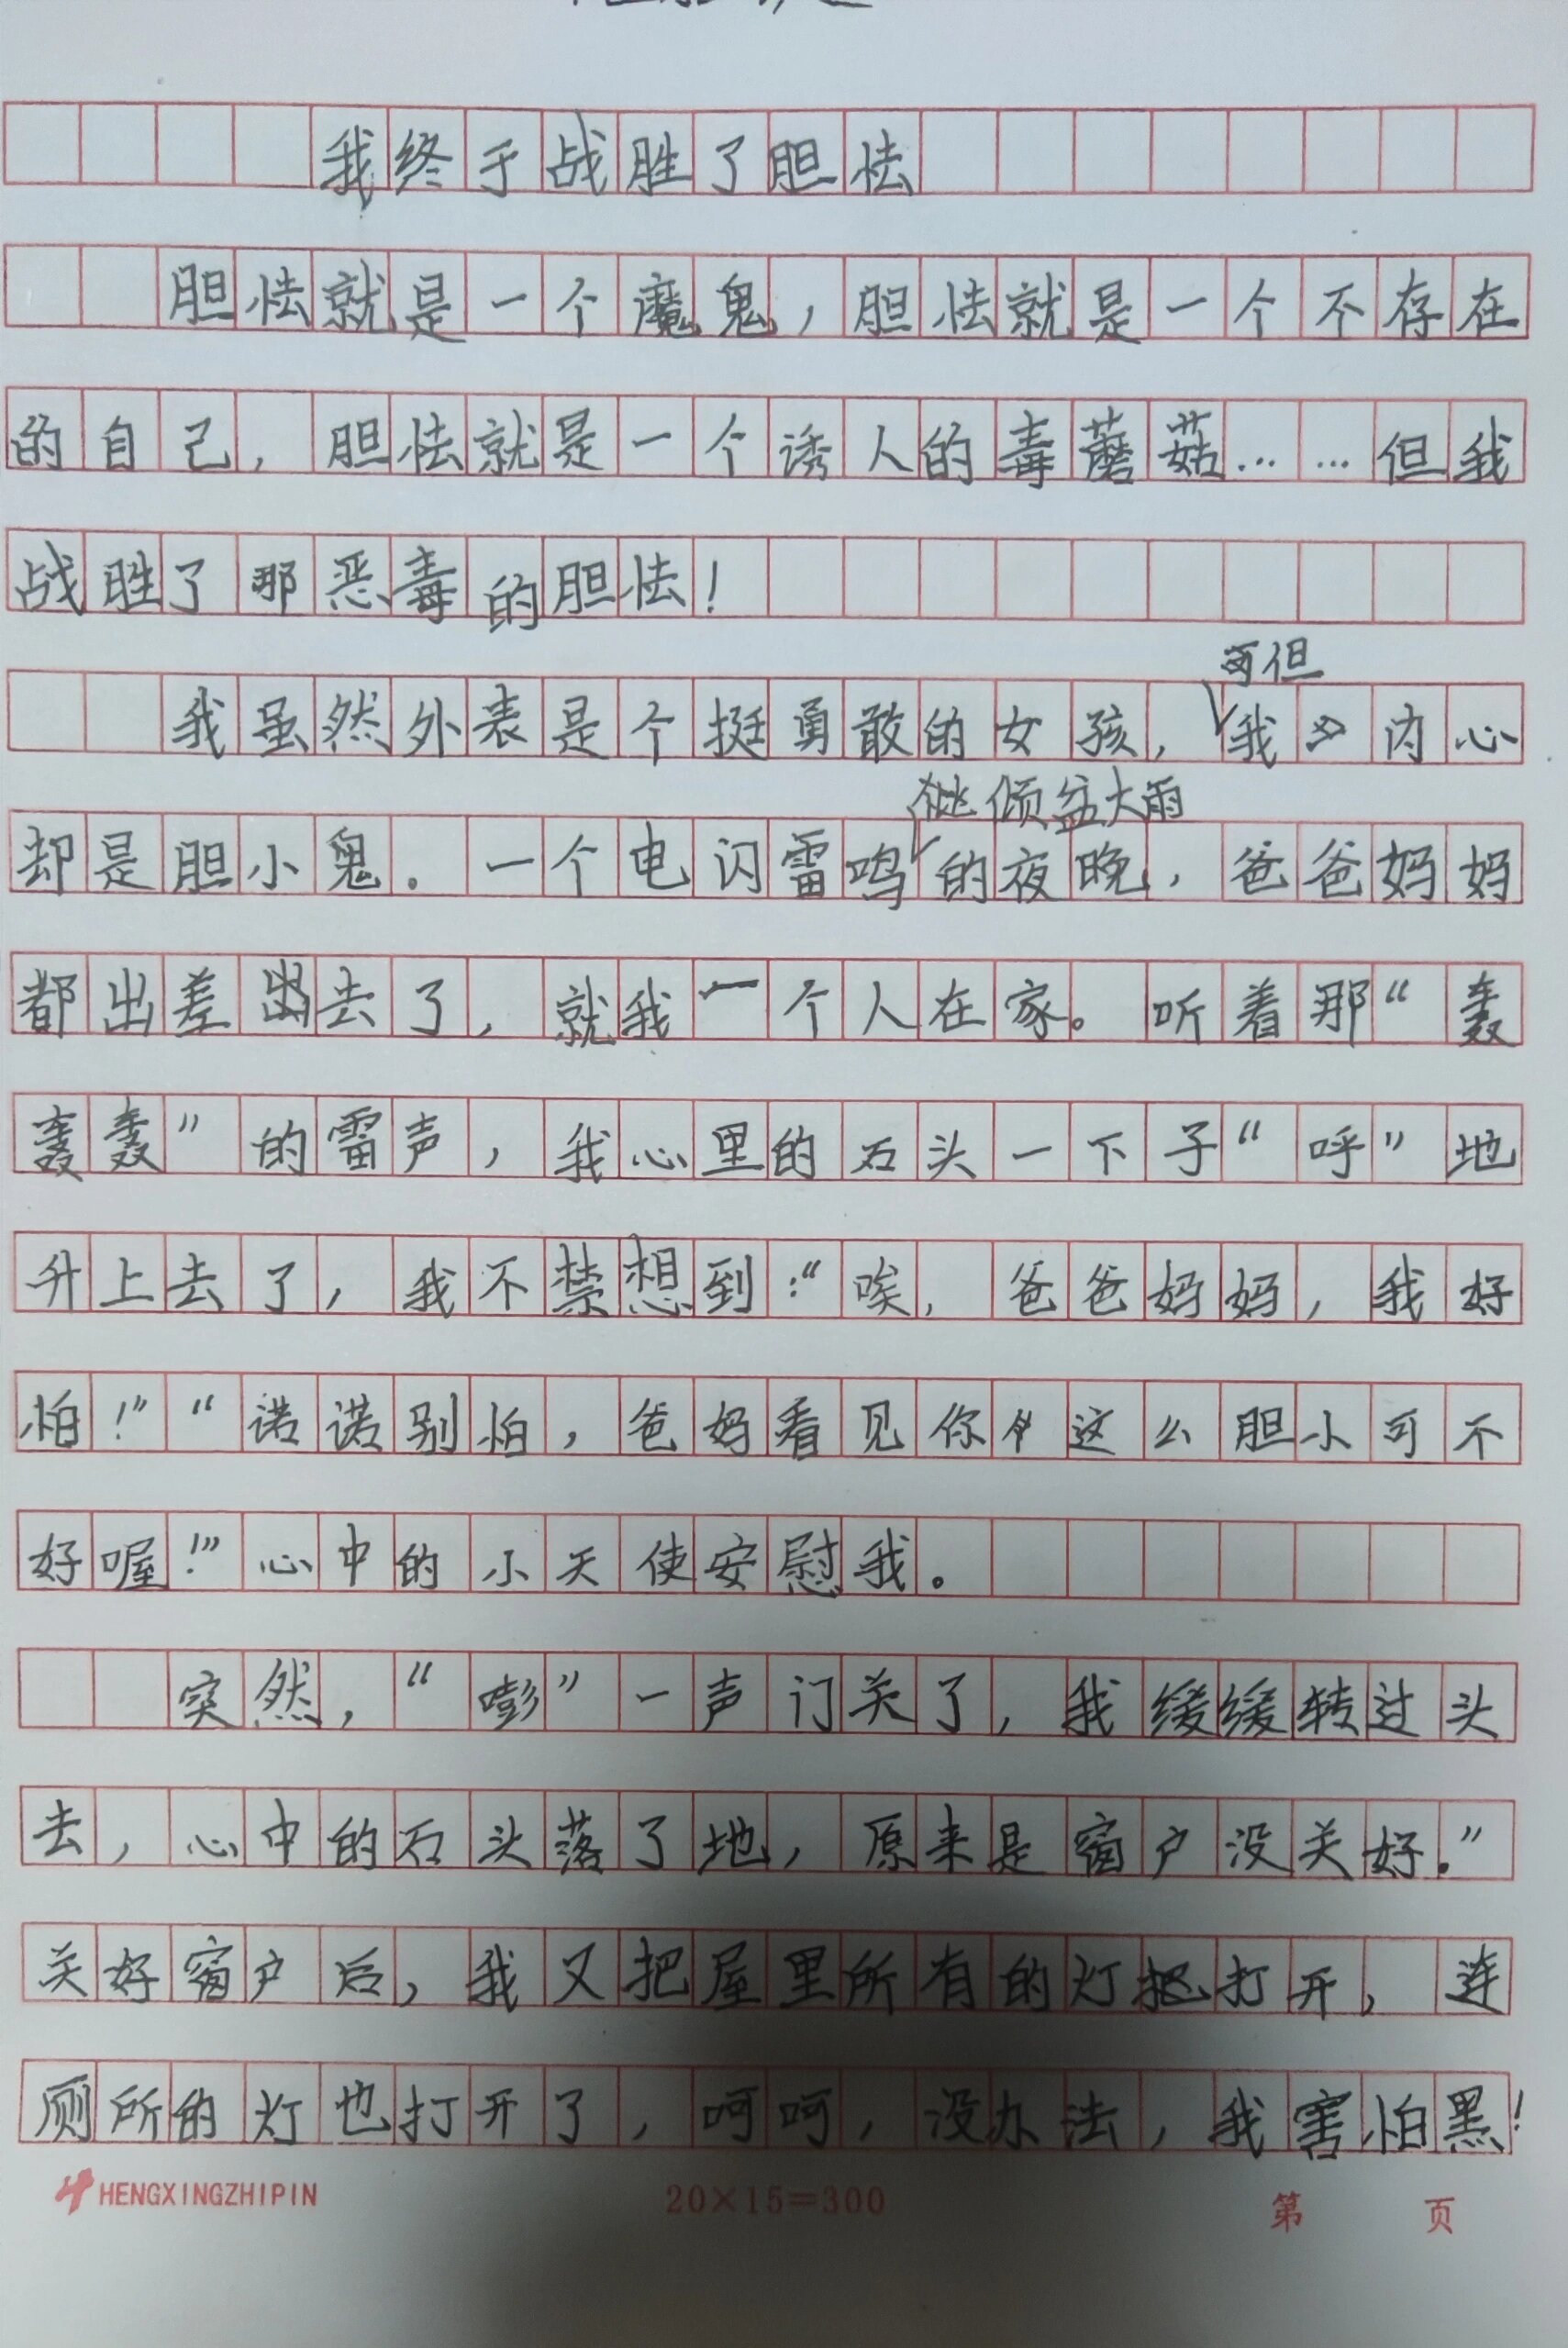 我终于战胜了胆怯
胆怯就是一个魔鬼，胆怯就是一个不存在
的自己，胆怯就是一个诱人的毒蘑菇……但我
战胜了那恶毒的胆怯！
但
我虽然外表是个挺勇敢的女孩，我内心
倾盆大雨
却是胆小鬼。一个电闪雷鸣的夜晚，爸爸妈妈
都出差出去了，就我一个人在家。听着那“轰
轰轰”的雷声，我心里的石头一下子“呼”地
升上去了，我不禁想到：“唉，爸爸妈妈，我好
怕！”“诺诺别怕，爸妈看见你这么胆小可不
好喔！”心中的小天使安慰我。
突然，“嘭”一声门关了，我缓缓转过头
去，心中的石头落了地，原来是窗户没关好。”
关好窗户后，我又把屋里所有的灯打开，连
厕所的灯也打开了，呵呵，没办法，我害怕黑！
HENGXINGZHIPIN
20×15=300
第 页